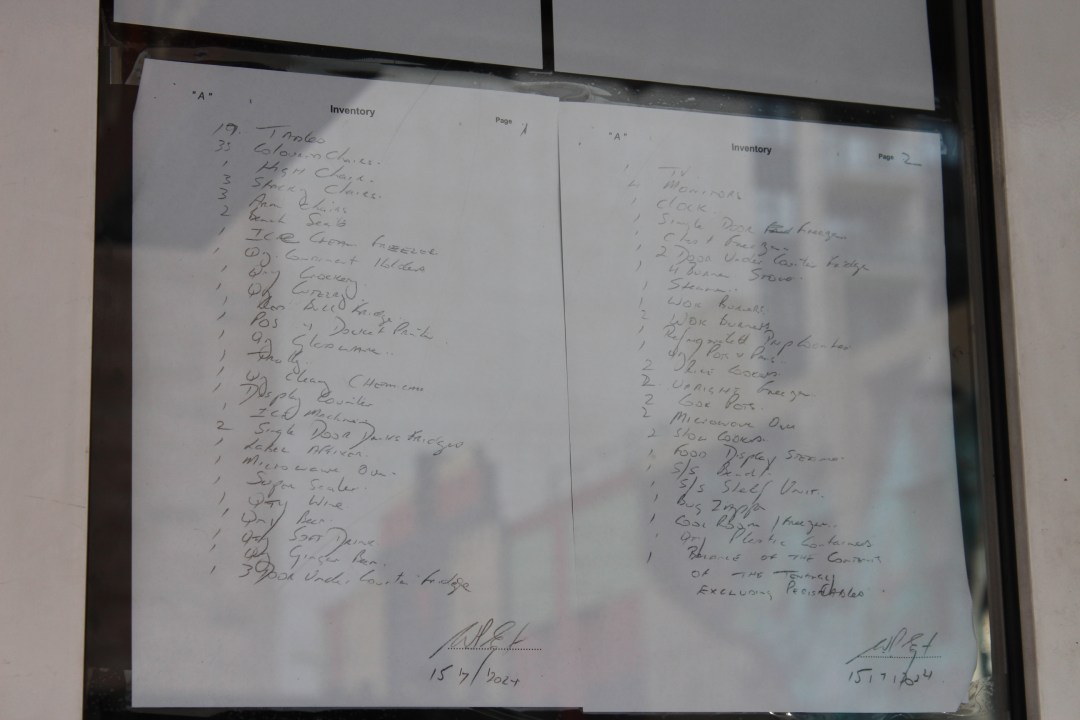 "A"
Inventory
Page 1
19 Tables
Chairs.
1 High Chair.
3 Stacking Chairs.
3 Arm Chairs
2 Bench Seats
1 Ice Cream Freezer
1 Qty Condiment Holders
1 Qty Crockery
1 Qty Cutlery
1 Fridge.
1 POS & Docket Printer
1 Qty Glassware.
1 Trolly.
1 Qty Clean Chemicals
1 Display Counter
1 Ice Machine
2 Single Door Drinks Fridges
1 Label
1 Microwave Oven.
1 Sealer.
1 Qty Wine
1 Qty Beer
1 Qty Soft Drink
1 Qty Ginger Beer.
1 3 Door Under Counter Fridge
15/7/2024
"A"
Inventory
Page 2
1 TV
4 Monitors
1 Clock
1 Single Door Freezer
1 Chest Freezer
1 2 Door Under Counter Fridge
1 4 Burner Stove.
1 Steamer.
1 Wok Burner
2 Wok Burners
1 Refrigerated Prep Counter
1 Qty Pots & Pans.
2 Rice Cookers.
2 Upright Freezer
2 Cook Pots.
2 Microwave Oven
2 Cookers.
1 Food Display Steamer.
1 S/S Bench.
1 S/S Shelf Unit.
1 Bug Zapper
1 Cool Room / Freezer.
1 Qty Plastic Containers
1 Balance of the Contents
of the Tenancy
excluding Perishables.
15/7/2024